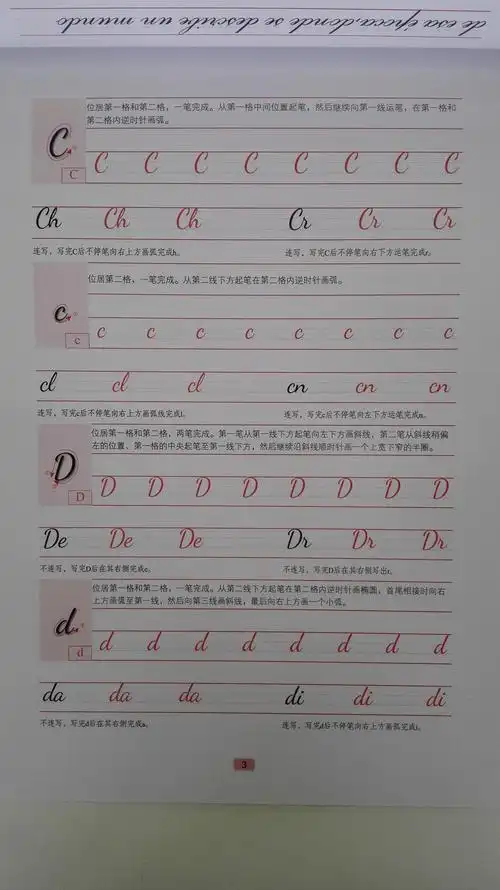 de esa época,donde se describe un mundo
位居第一格和第二格，一笔完成。从第一格中间位置起笔，然后继续向第一线运笔，在第一格和
第二格内逆时针画弧。
C
C C C C C C C C C
Ch Ch Ch Cr Cr Cr
连写，写完C后不停笔向右上方画弧完成h。 连写，写完C后不停笔向右下方运笔完成r。
位居第二格，一笔完成。从第二线下方起笔在第二格内逆时针画弧。
c
c c c c c c c c c
cl cl cl cn cn cn
连写，写完c后不停笔向右上方画弧线完成l。 连写，写完c后不停笔向左下方运笔完成n。
位居第一格和第二格，两笔完成。第一笔从第一线下方起笔向左下方画斜线，第二笔从斜线稍偏
左的位置、第一格的中央起笔至第一线下方，然后继续沿斜线顺时针画一个上宽下窄的半圈。
D
D D D D D D D D D
De De De Dr Dr Dr
不连写，写完D后在其右侧完成e。 不连写，写完D后在其右侧写出r。
位居第一格和第二格，一笔完成。从第二线下方起笔在第二格内逆时针画椭圆，首尾相接时向右
上方画弧至第一线，然后向第三线画斜线，最后向右上方画一个小弧。
d
d d d d d d d d d
da da da di di di
不连写，写完d后在其右侧完成a。 连写，写完d后不停笔向右上方画弧完成i。
3